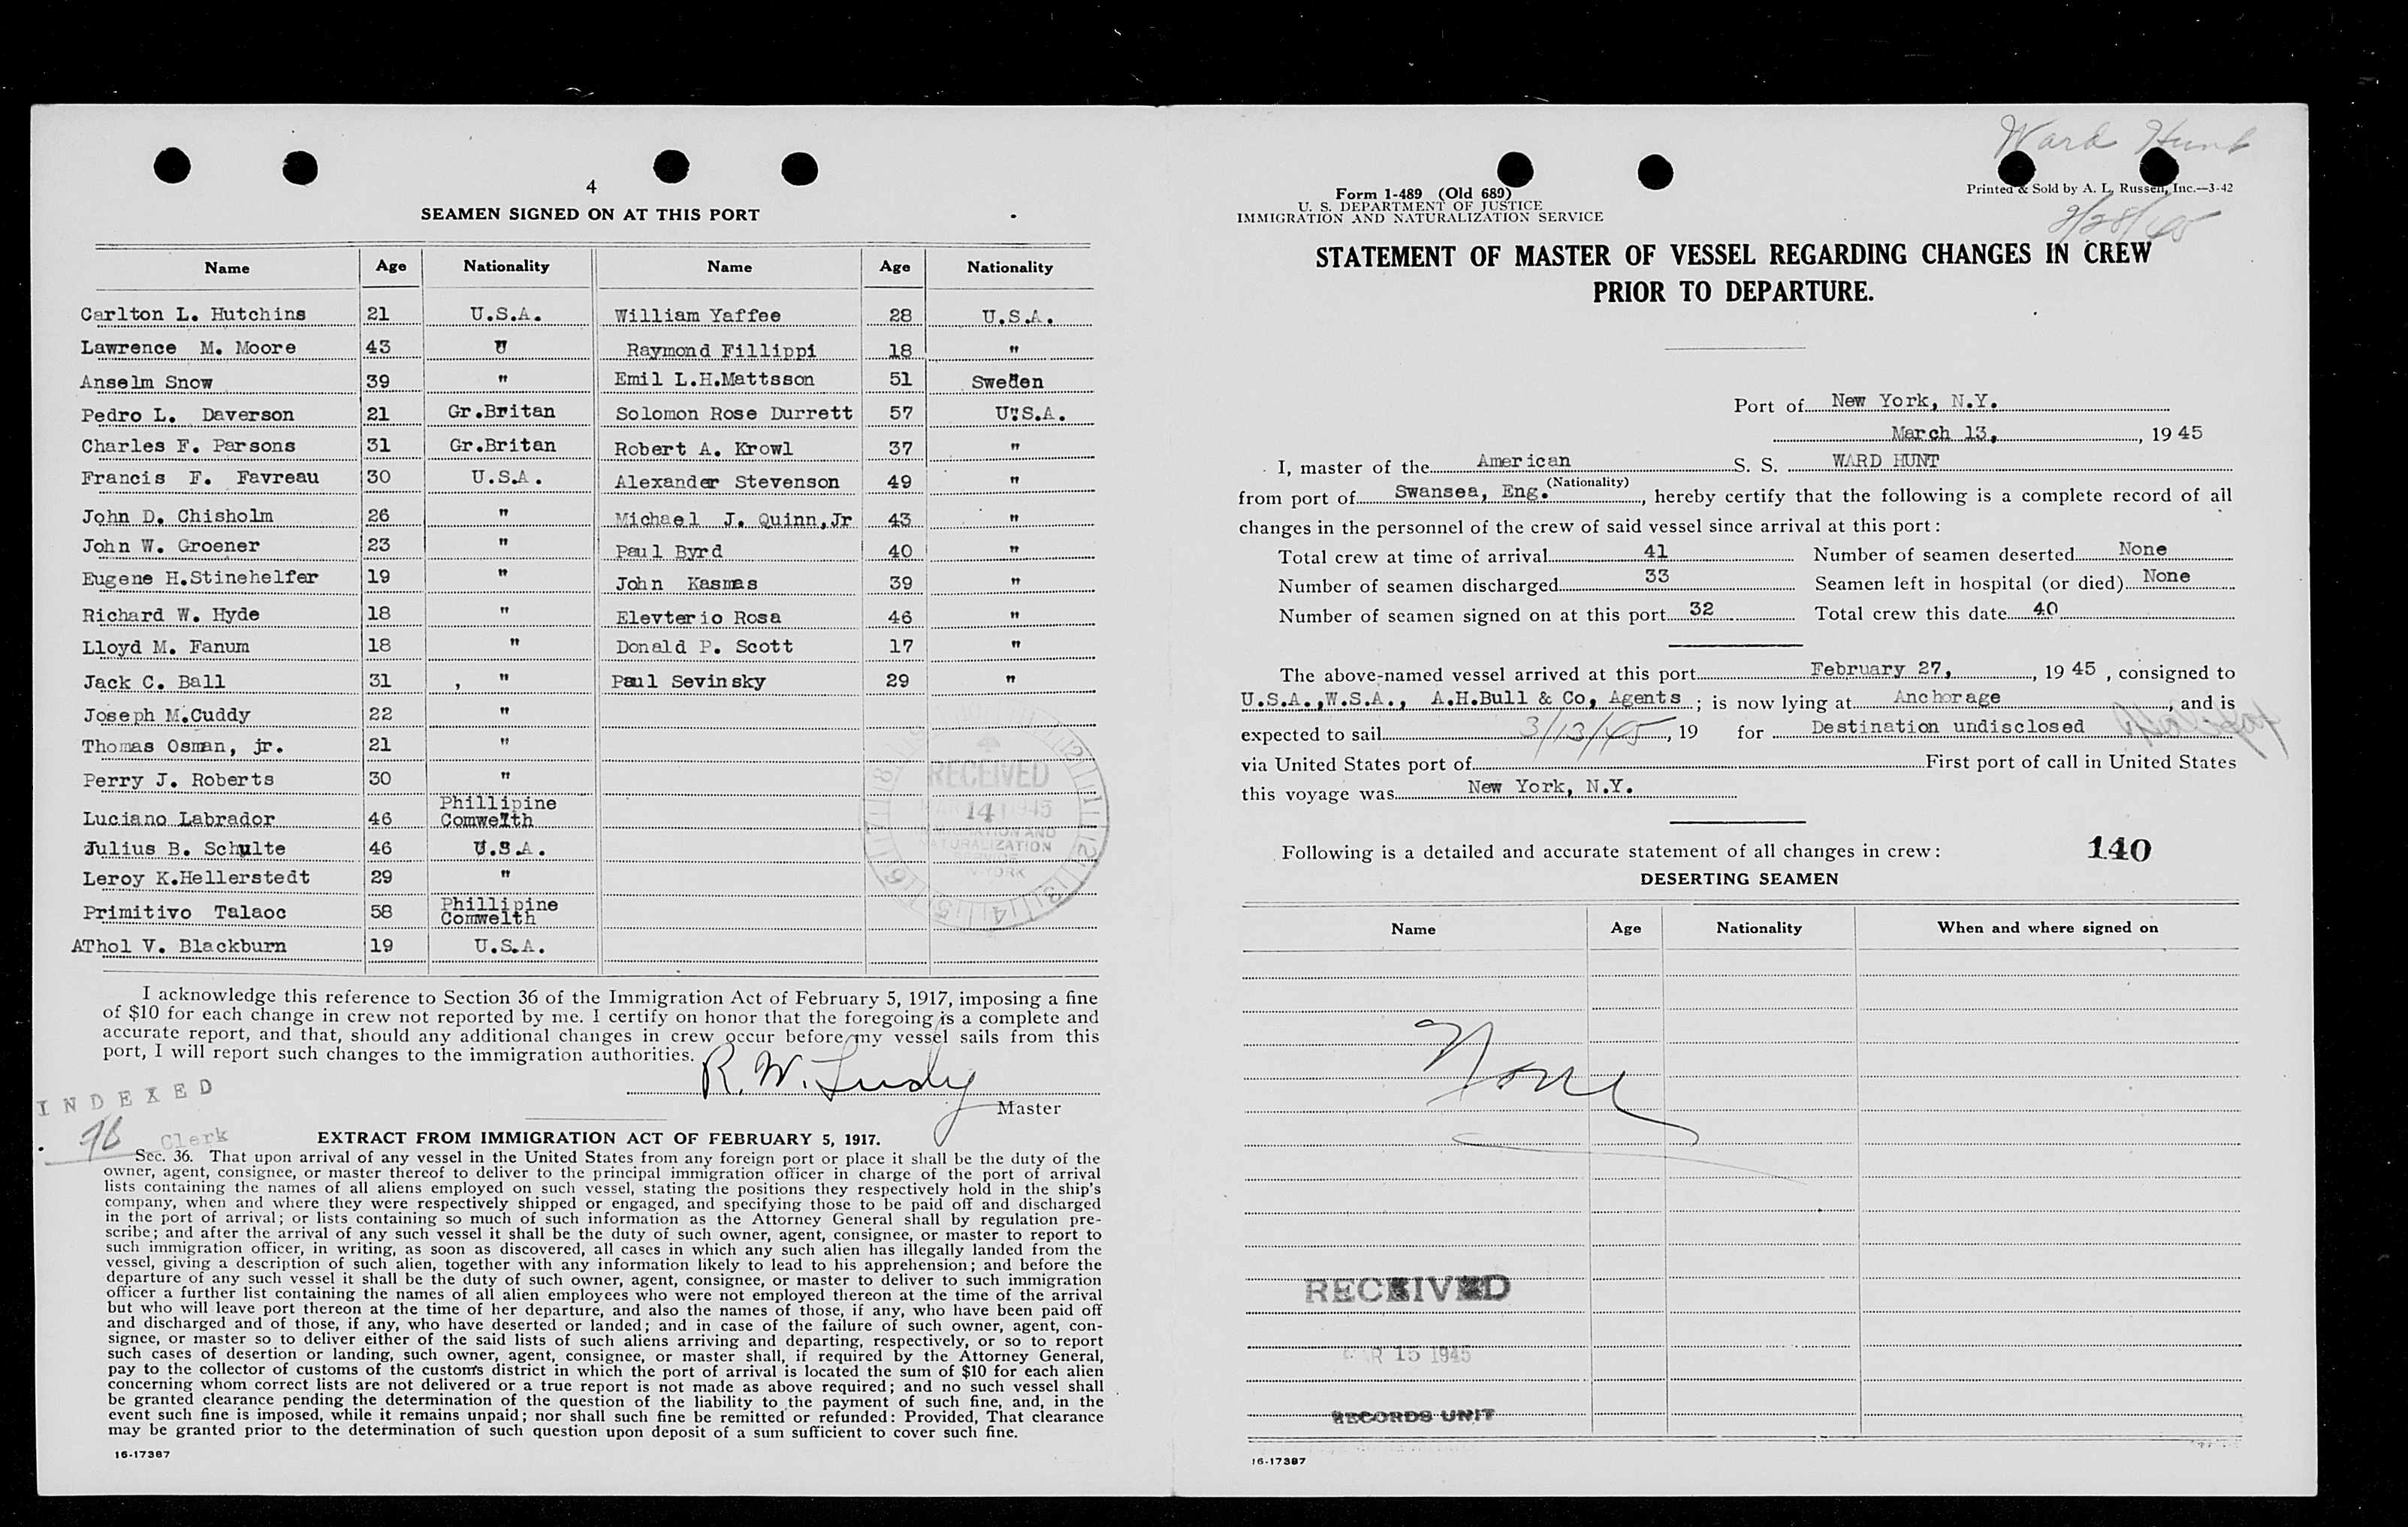 4
SEAMEN SIGNED ON AT THIS PORT
Name Age Nationality Name Age Nationality
Carlton L. Hutchins 21 U.S.A. William Yaffee 28 U.S.A.
Lawrence M. Moore 43 " Raymond Fillippi 18 "
Anselm Snow 39 " Emil L.H.Mattsson 51 Sweden
Pedro L. Daverson 21 Gr.Britan Solomon Rose Durrett 57 U.S.A.
Charles F. Parsons 31 Gr.Britan Robert A. Krowl 37 "
Francis F. Favreau 30 U.S.A. Alexander Stevenson 49 "
John D. Chisholm 26 " Michael J. Quinn,Jr 43 "
John W. Groener 23 " Paul Byrd 40 "
Eugene H.Stinehelfer 19 " John Kasmas 39 "
Richard W. Hyde 18 " Elevterio Rosa 46 "
Lloyd M. Fanum 18 " Donald P. Scott 17 "
Jack C. Ball 31 , " Paul Sevinsky 29 "
Joseph M.Cuddy 22 "
Thomas Osman, jr. 21 "
Perry J. Roberts 30 "
Luciano Labrador 46 Phillipine Comwelth
Julius B. Schulte 46 U.S.A.
Leroy K.Hellerstedt 29 "
Primitivo Talaoc 58 Phillipine Comwelth
AThol V. Blackburn 19 U.S.A.
RECEIVED
MAR 14 1945
IMMIGRATION AND
NATURALIZATION
SERVICE
I acknowledge this reference to Section 36 of the Immigration Act of February 5, 1917, imposing a fine
of $10 for each change in crew not reported by me. I certify on honor that the foregoing is a complete and
accurate report, and that, should any additional changes in crew occur before my vessel sails from this
port, I will report such changes to the immigration authorities.
R. W.
Master
INDEXED
Clerk
EXTRACT FROM IMMIGRATION ACT OF FEBRUARY 5, 1917.
Sec. 36. That upon arrival of any vessel in the United States from any foreign port or place it shall be the duty of the
owner, agent, consignee, or master thereof to deliver to the principal immigration officer in charge of the port of arrival
lists containing the names of all aliens employed on such vessel, stating the positions they respectively hold in the ship's
company, when and where they were respectively shipped or engaged, and specifying those to be paid off and discharged
in the port of arrival; or lists containing so much of such information as the Attorney General shall by regulation pre-
scribe; and after the arrival of any such vessel it shall be the duty of such owner, agent, consignee, or master to report to
such immigration officer, in writing, as soon as discovered, all cases in which any such alien has illegally landed from the
vessel, giving a description of such alien, together with any information likely to lead to his apprehension; and before the
departure of any such vessel it shall be the duty of such owner, agent, consignee, or master to deliver to such immigration
officer a further list containing the names of all alien employees who were not employed thereon at the time of the arrival
but who will leave port thereon at the time of her departure, and also the names of those, if any, who have been paid off
and discharged and of those, if any, who have deserted or landed; and in case of the failure of such owner, agent, con-
signee, or master so to deliver either of the said lists of such aliens arriving and departing, respectively, or so to report
such cases of desertion or landing, such owner, agent, consignee, or master shall, if required by the Attorney General,
pay to the collector of customs of the customs district in which the port of arrival is located the sum of $10 for each alien
concerning whom correct lists are not delivered or a true report is not made as above required; and no such vessel shall
be granted clearance pending the determination of the question of the liability to the payment of such fine, and, in the
event such fine is imposed, while it remains unpaid; nor shall such fine be remitted or refunded: Provided, That clearance
may be granted prior to the determination of such question upon deposit of a sum sufficient to cover such fine.
16-17387
Ward Hunt
Form 1-489 (Old 689)
U. S. DEPARTMENT OF JUSTICE
IMMIGRATION AND NATURALIZATION SERVICE
Printed & Sold by A. L. Russell, Inc.—3-42
2/28/45
STATEMENT OF MASTER OF VESSEL REGARDING CHANGES IN CREW
PRIOR TO DEPARTURE.
Port of New York, N.Y.
March 13, , 19 45
I, master of the American S. S. WARD HUNT
(Nationality)
from port of Swansea, Eng. , hereby certify that the following is a complete record of all
changes in the personnel of the crew of said vessel since arrival at this port:
Total crew at time of arrival 41 Number of seamen deserted None
Number of seamen discharged 33 Seamen left in hospital (or died) None
Number of seamen signed on at this port 32 Total crew this date 40
The above-named vessel arrived at this port February 27, , 19 45 , consigned to
U.S.A.,W.S.A., A.H.Bull & Co, Agents ; is now lying at Anchorage , and is
expected to sail 3/13/45 , 19 for Destination undisclosed
via United States port of First port of call in United States
this voyage was New York, N.Y.
Following is a detailed and accurate statement of all changes in crew: 140
DESERTING SEAMEN
Name Age Nationality When and where signed on
None
RECEIVED
MAR 15 1945
RECORDS UNIT
16-17387